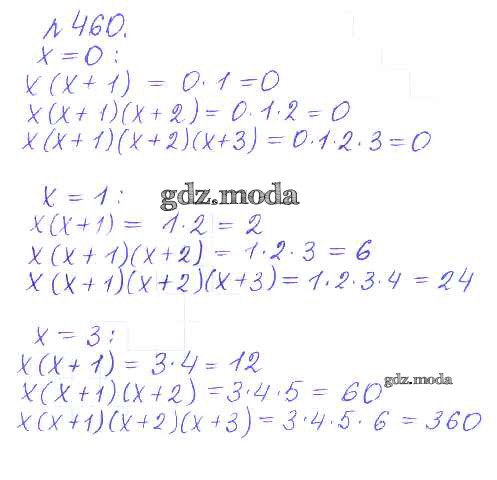 № 460.
x = 0 :
x (x + 1) = 0 · 1 = 0
x (x + 1) (x + 2) = 0 · 1 · 2 = 0
x (x + 1) (x + 2) (x + 3) = 0 · 1 · 2 · 3 = 0
x = 1 : gdz.moda
x (x + 1) = 1 · 2 = 2
x (x + 1) (x + 2) = 1 · 2 · 3 = 6
x (x + 1) (x + 2) (x + 3) = 1 · 2 · 3 · 4 = 24
x = 3 :
x (x + 1) = 3 · 4 = 12
x (x + 1) (x + 2) = 3 · 4 · 5 = 60 gdz.moda
x (x + 1) (x + 2) (x + 3) = 3 · 4 · 5 · 6 = 360